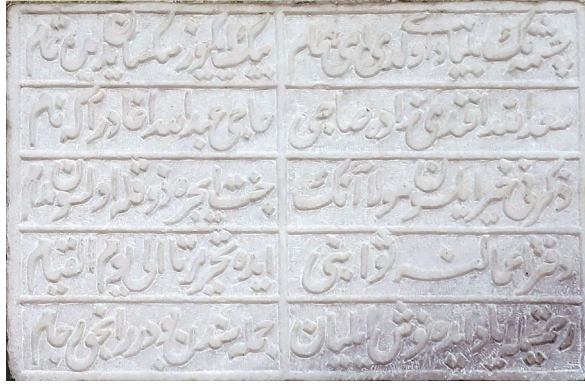 چشمه نك بنيادى اولدى اى همام بيك ايكيوز سكسان يديده تمام
سعد الله افندى زاده صاحبى حاجى عبد الله اغادر اكه نام
ذكرنى خير ايلسون مولا آنك جنت ايچره ذوقله اولسون مدام
دفتر اعمالنه ثوابنى ايده تحرير تا الى يوم القيام
رحمتيله ياد ايده نوش ايليان جمله سندن بودر انجق رجام